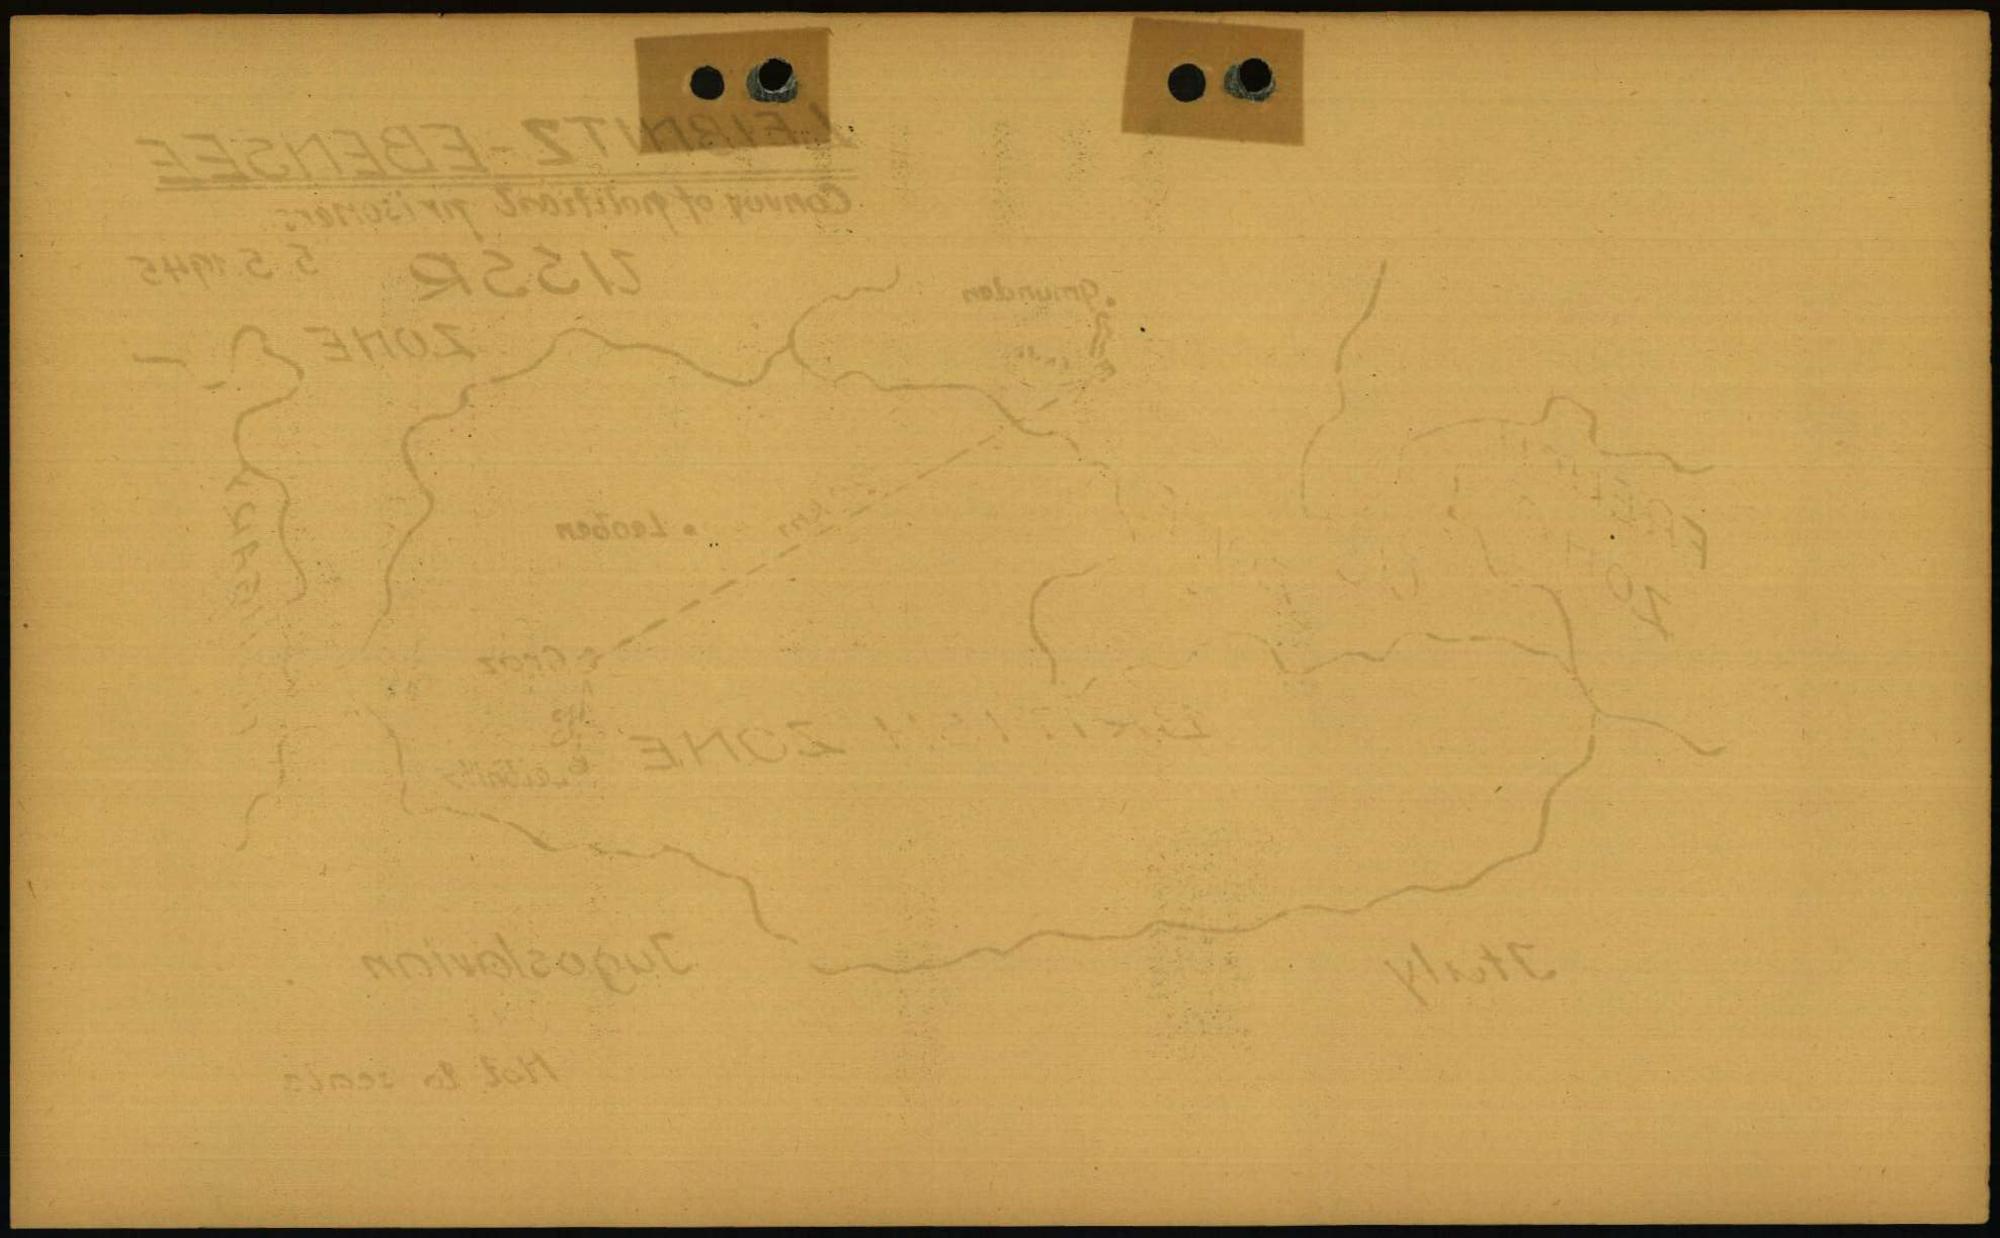 LEIBNITZ - EBENSEE
Convoy of political prisoners
5.5.1945
USSR
ZONE
Gmunden
Leoben
km
Graz
Leibnitz
BRITISH ZONE
Italy
Jugoslavian
Not to scale